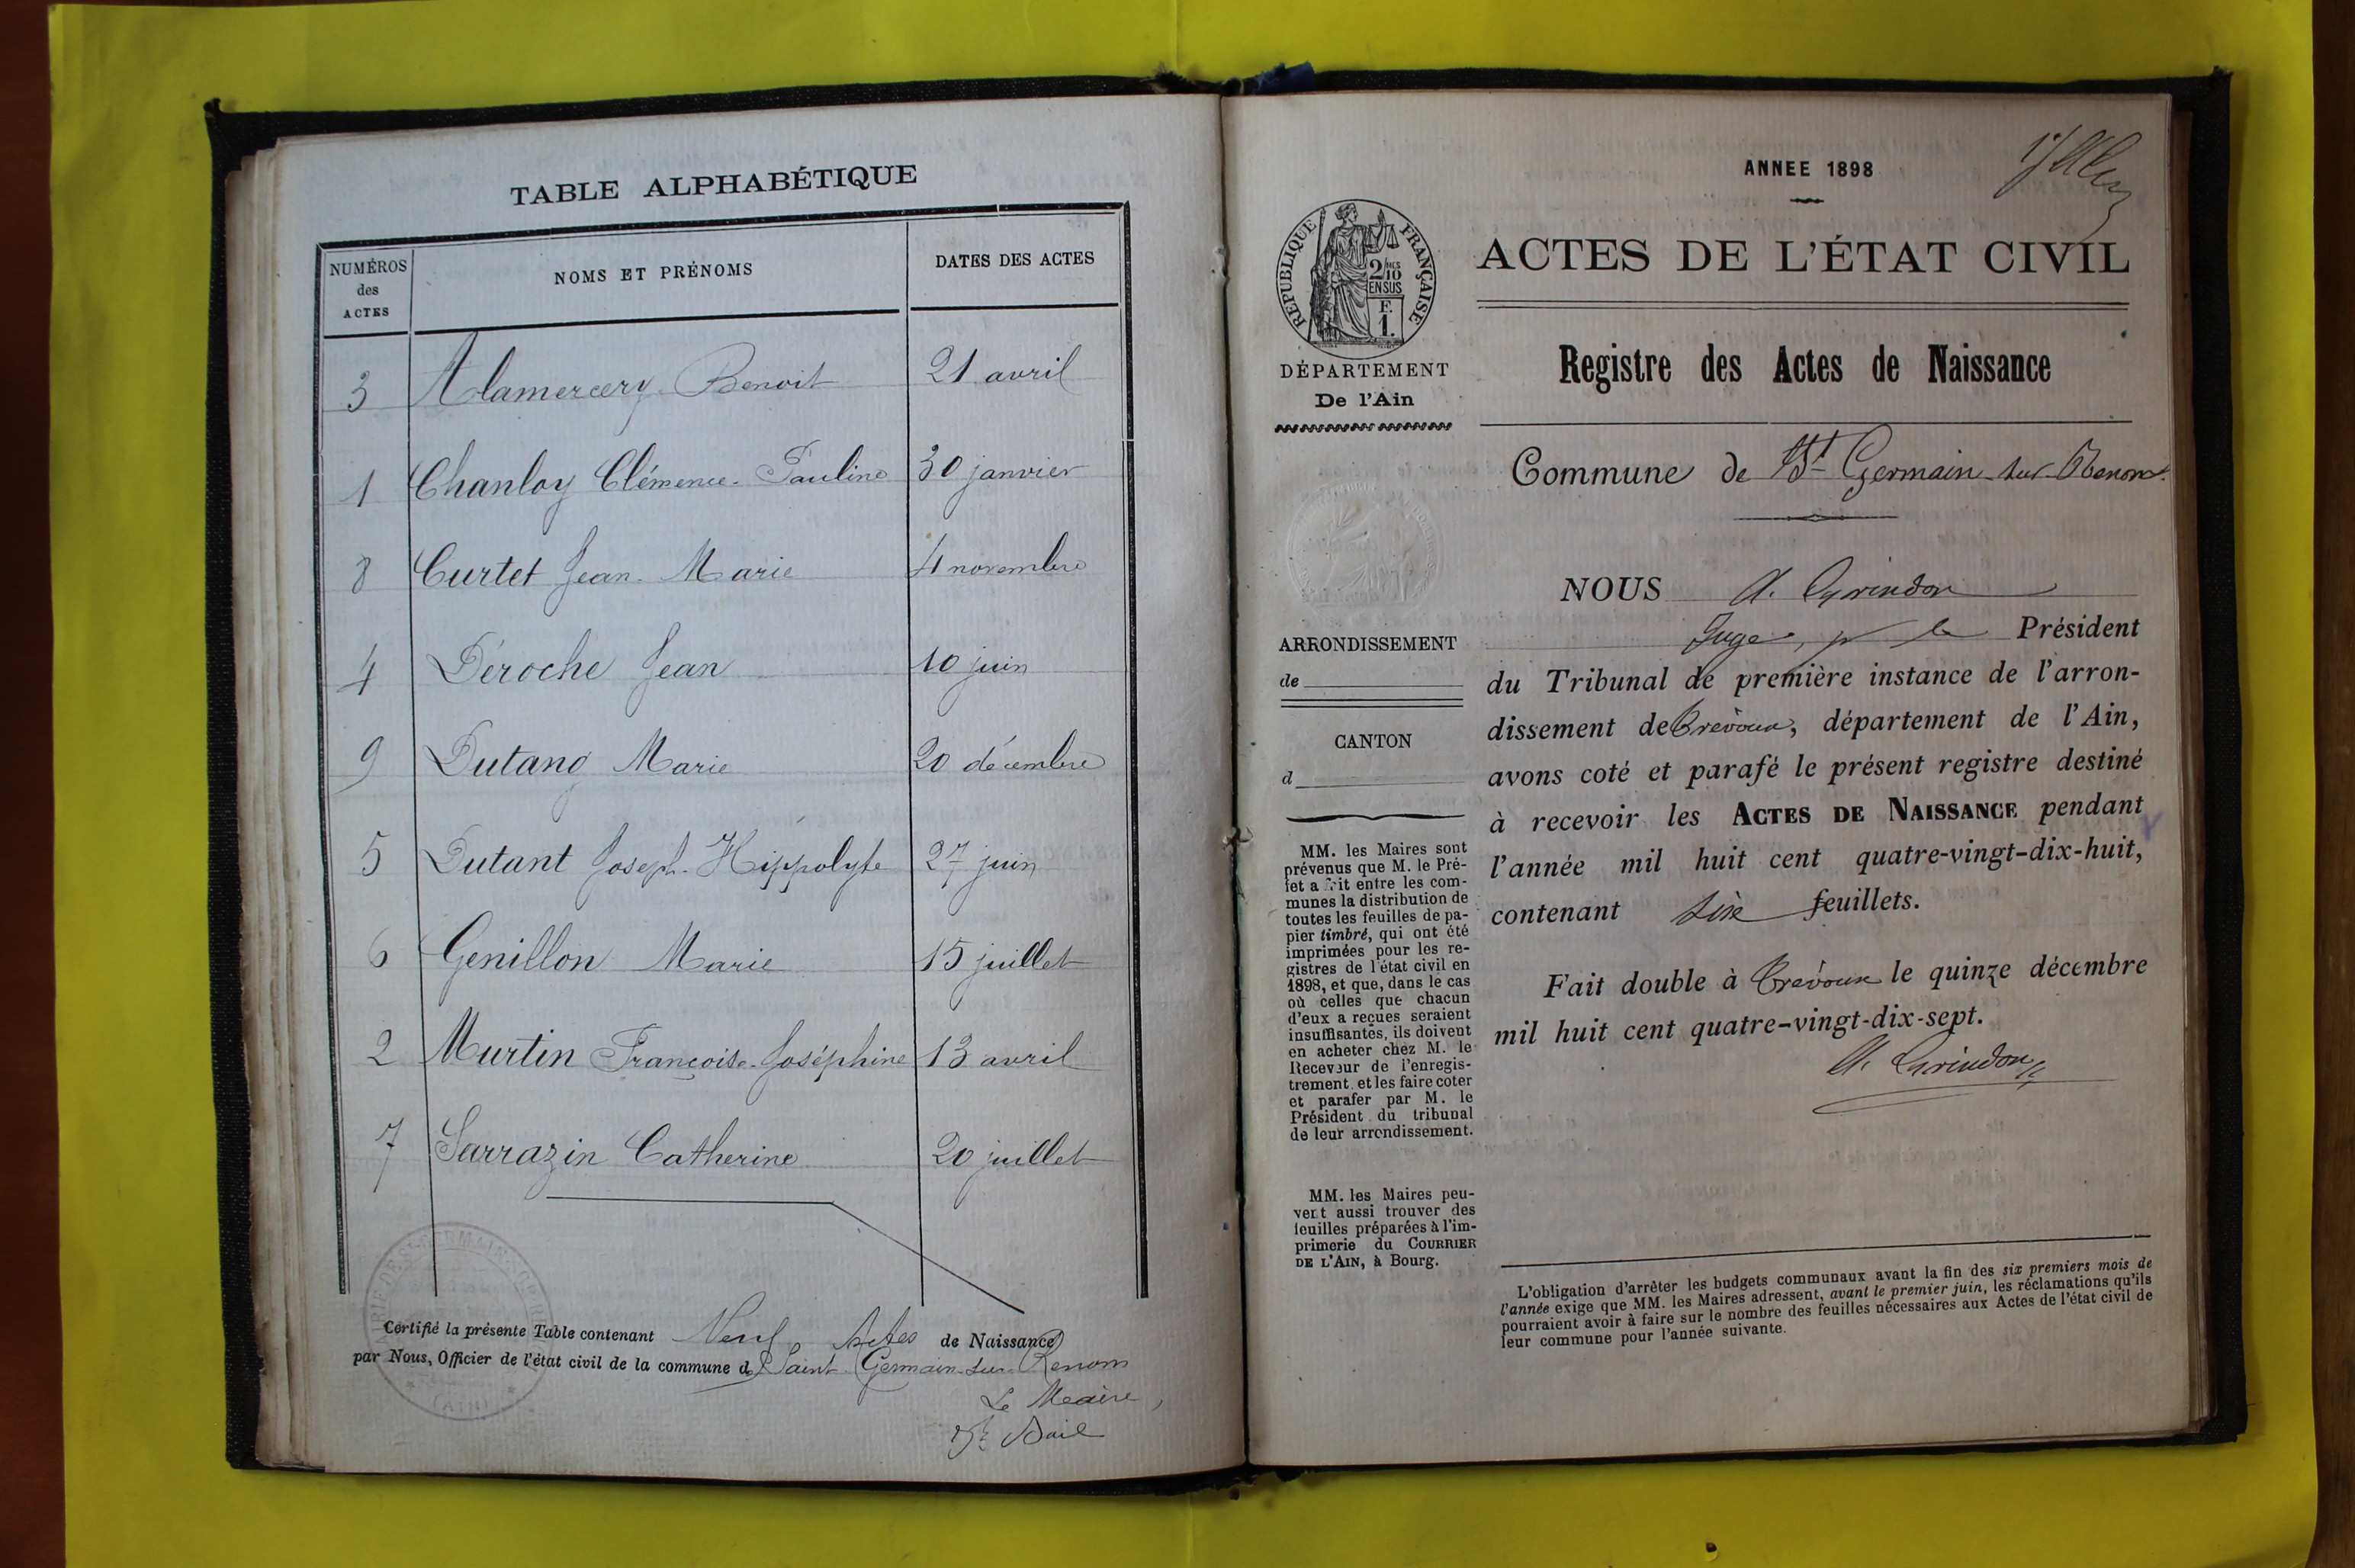 TABLE ALPHABÉTIQUE
NUMÉROS des ACTES
NOMS ET PRÉNOMS
DATES DES ACTES
3 Alamercery Benoit 21 avril
1 Chanloy Clémence-Pauline 30 janvier
8 Curtet Jean-Marie 4 novembre
4 Déroche Jean 10 juin
9 Dutang Marie 20 décembre
5 Dutant Joseph-Hippolyte 27 juin
6 Genillon Marie 15 juillet
2 Murtin Françoise-Joséphine 13 avril
7 Sarrazin Catherine 20 juillet
Certifié la présente Table contenant Neuf Actes de Naissance
par Nous, Officier de l'état civil de la commune de Saint Germain-sur-Renom
Le Maire,
ANNEE 1898
RÉPUBLIQUE FRANÇAISE
2/10
EN SUS
F.
1.
ACTES DE L'ÉTAT CIVIL
DÉPARTEMENT
De l'Ain
Registre des Actes de Naissance
Commune de St Germain-sur-Renom
NOUS A. Grindon
Juge, pr le Président
du Tribunal de première instance de l'arron-
dissement de Trévoux, département de l'Ain,
avons coté et parafé le présent registre destiné
à recevoir les ACTES DE NAISSANCE pendant
l'année mil huit cent quatre-vingt-dix-huit,
contenant six feuillets.
Fait double à Trévoux le quinze décembre
mil huit cent quatre-vingt-dix-sept.
A. Grindon
ARRONDISSEMENT
de
CANTON
d
MM. les Maires sont
prévenus que M. le Pré-
fet a fait entre les com-
munes la distribution de
toutes les feuilles de pa-
pier timbré, qui ont été
imprimées pour les re-
gistres de l'état civil en
1898, et que, dans le cas
où celles que chacun
d'eux a reçues seraient
insuffisantes, ils doivent
en acheter chez M. le
Receveur de l'enregis-
trement et les faire coter
et parafer par M. le
Président du tribunal
de leur arrondissement.
MM. les Maires peu-
vent aussi trouver des
feuilles préparées à l'im-
primerie du COURRIER
DE L'AIN, à Bourg.
L'obligation d'arrêter les budgets communaux avant la fin des six premiers mois de
l'année exige que MM. les Maires adressent, avant le premier juin, les réclamations qu'ils
pourraient avoir à faire sur le nombre des feuilles nécessaires aux Actes de l'état civil de
leur commune pour l'année suivante.